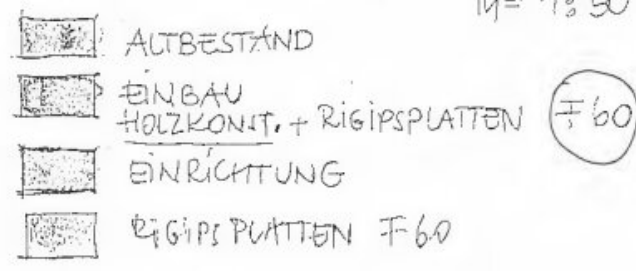 M= 1:50
ALTBESTAND
EINBAU
HOLZKONST. + RIGIPSPLATTEN F60
EINRICHTUNG
RIGIPSPLATTEN F60